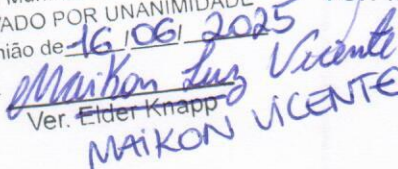 VADO POR UNANIMIDADE
nião de 16 / 06 / 2025
Maikon Luz Vicente
Ver. Elder Knapp
MAIKON VICENTE